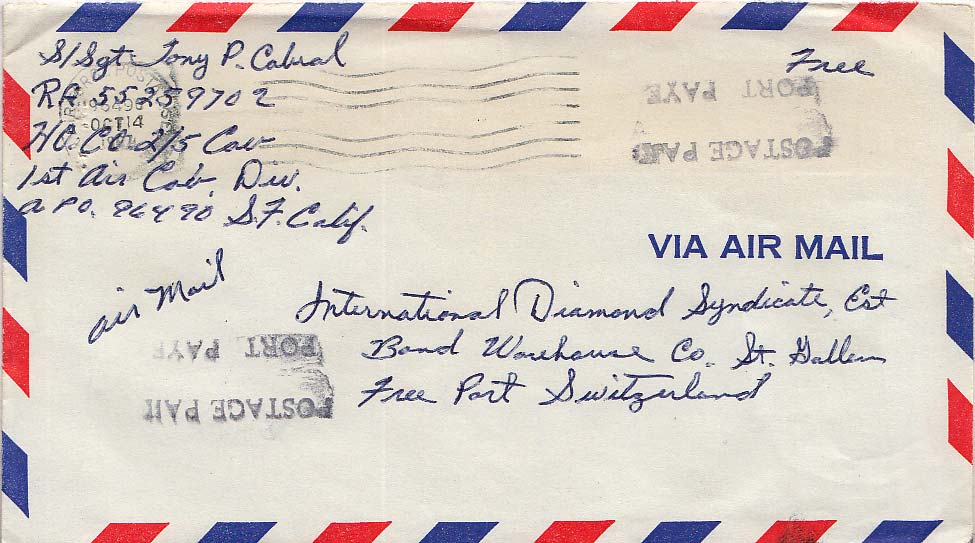 S/Sgt. Tony P. Cabral
RA 55259702
HQ CO 2/5 Cav
1st Air Cav. Div.
APO. 96490 S.F. Calif.
POST
96490
OCT 14
Free
PORT PAYE
POSTAGE PAID
VIA AIR MAIL
air Mail
International Diamond Syndicate, Est
Bond Warehouse Co. St. Gallen
Free Port Switzerland
PORT PAYE
POSTAGE PAID